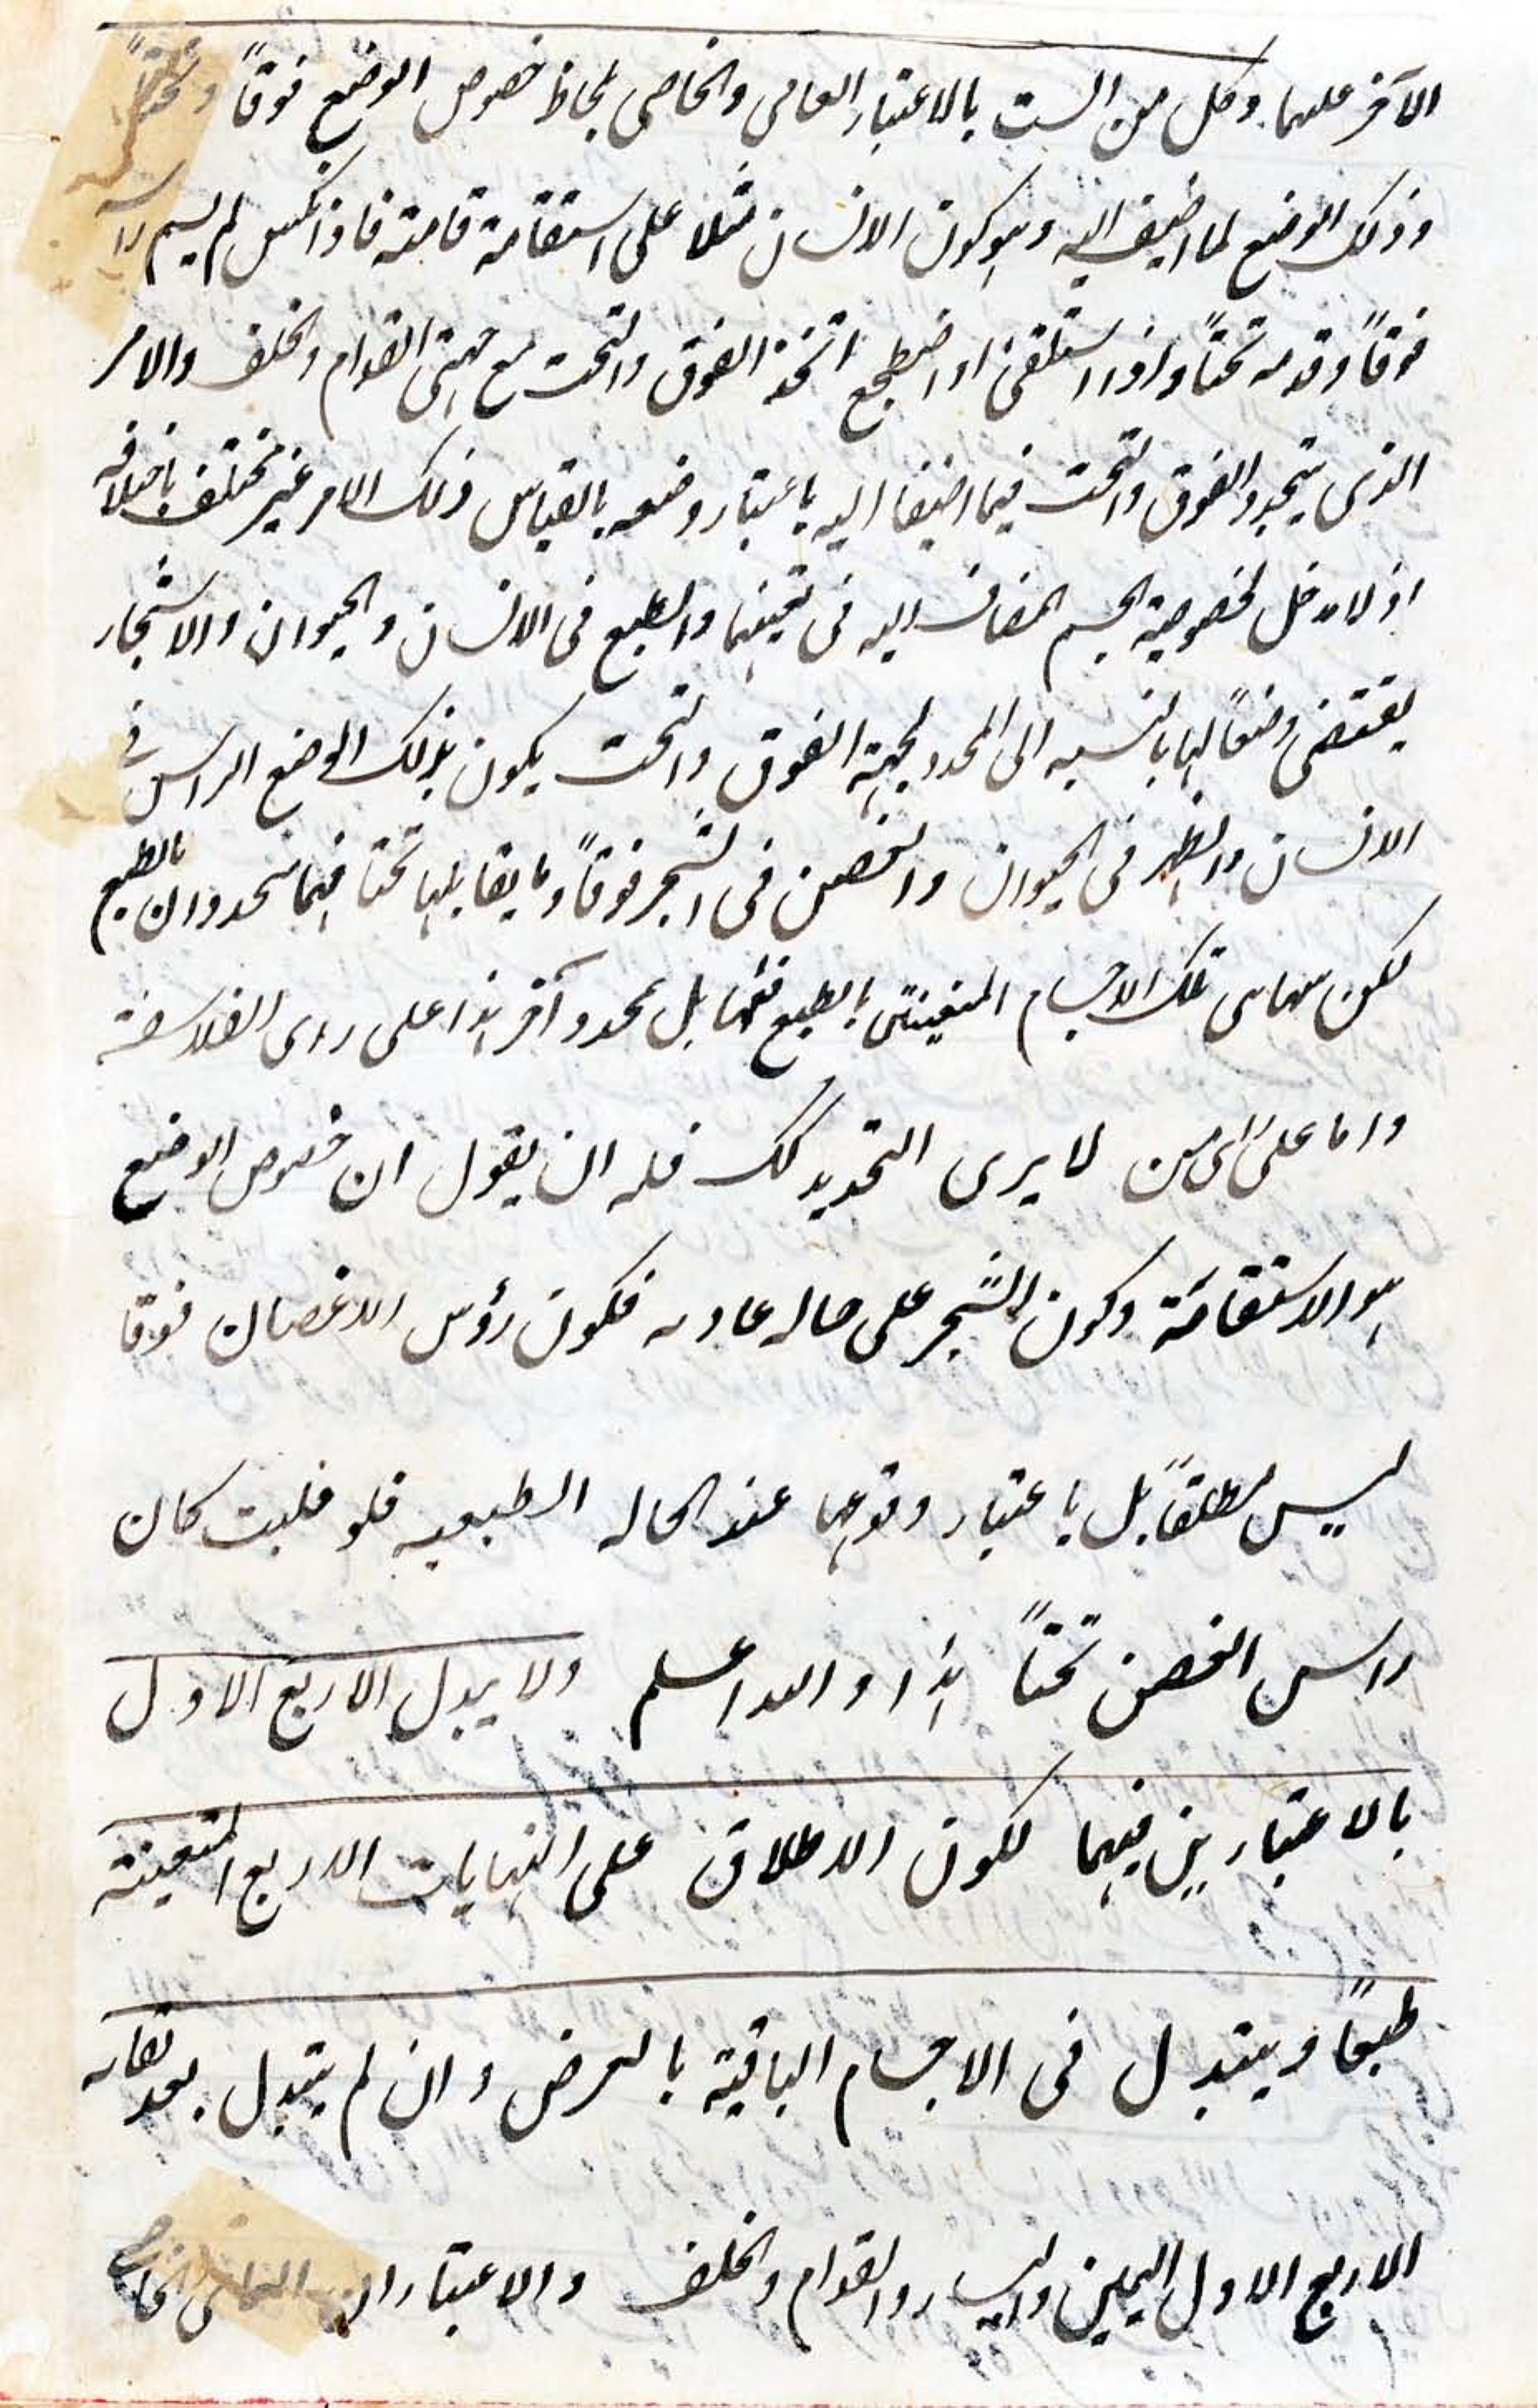 الآخر عليها وكل من الست بالاعتبار العامى والخاصى لجاظ خصوص الوضع فوقاً وتحتاً
وذلك الوضع لما اضيف اليه وهو كون الانسان مثلا على استقامة قامته فاذا نكس لم يسم راسه
فوقاً وقدمه تحتاً واذا استلقى او اضطجع اتحد الفوق والتحت مع جهتى القدام والخلف والامر
الذى يتحدد الفوق والتحت فيما اضيفا اليه باعتبار وضعه بالقياس ذلك الامر غير مختلف باختلافه
اذ لا دخل لخصوصية الجسم المضاف اليه فى تعينها والطبع فى الانسان والحيوان والاشجار
يقتضى وضعاً لها بالنسبه الى المحدد لجهة الفوق والتحت يكون بذلك الوضع الراس فى
الانسان والظهر فى الحيوان والغصن فى الشجر فوقاً وما يقابلها تحتا فهما محدودان بالطبع
لكن تلك الاجسام بالطبع بل بمحدد آخر هذا على راى الفلاسفة
واما على راى من لا يرى التحديد كك فله ان يقول ان خصوص الوضع
هو الاستقامة وكون الشجر على حاله عاديه فكون رؤس الاغصان فوقا
ليس مطلقاً بل باعتبار وقوعها عند الحاله الطبعيه فلو قلبت كان
راس الغصن تحتاً هذا والله اعلم ولا يبدل الاربع الاول
بالاعتبارين فيهما لكون الاطلاق على النهايات الاربع المتعينة
طبعاً ويتبدل فى الاجسام الباقية بالعرض وان لم يتبدل بعد بقائه
الاربع الاول اليمين واليسار والقدام والخلف والاعتباران العامى والخاصى